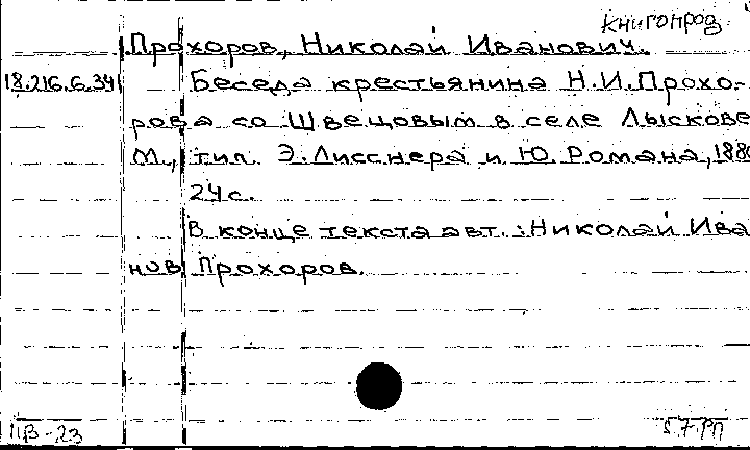 книгопрод
Прохоров, Николай Иванович.
18.216.6.34 Беседа крестьянина Н.И.Прохо-
рова со Швецовым в селе Лыскове
М., тип. Э.Лисснера и Ю.Романа,
24 с.
В конце текста авт.: Николай Ива
нов Прохоров.